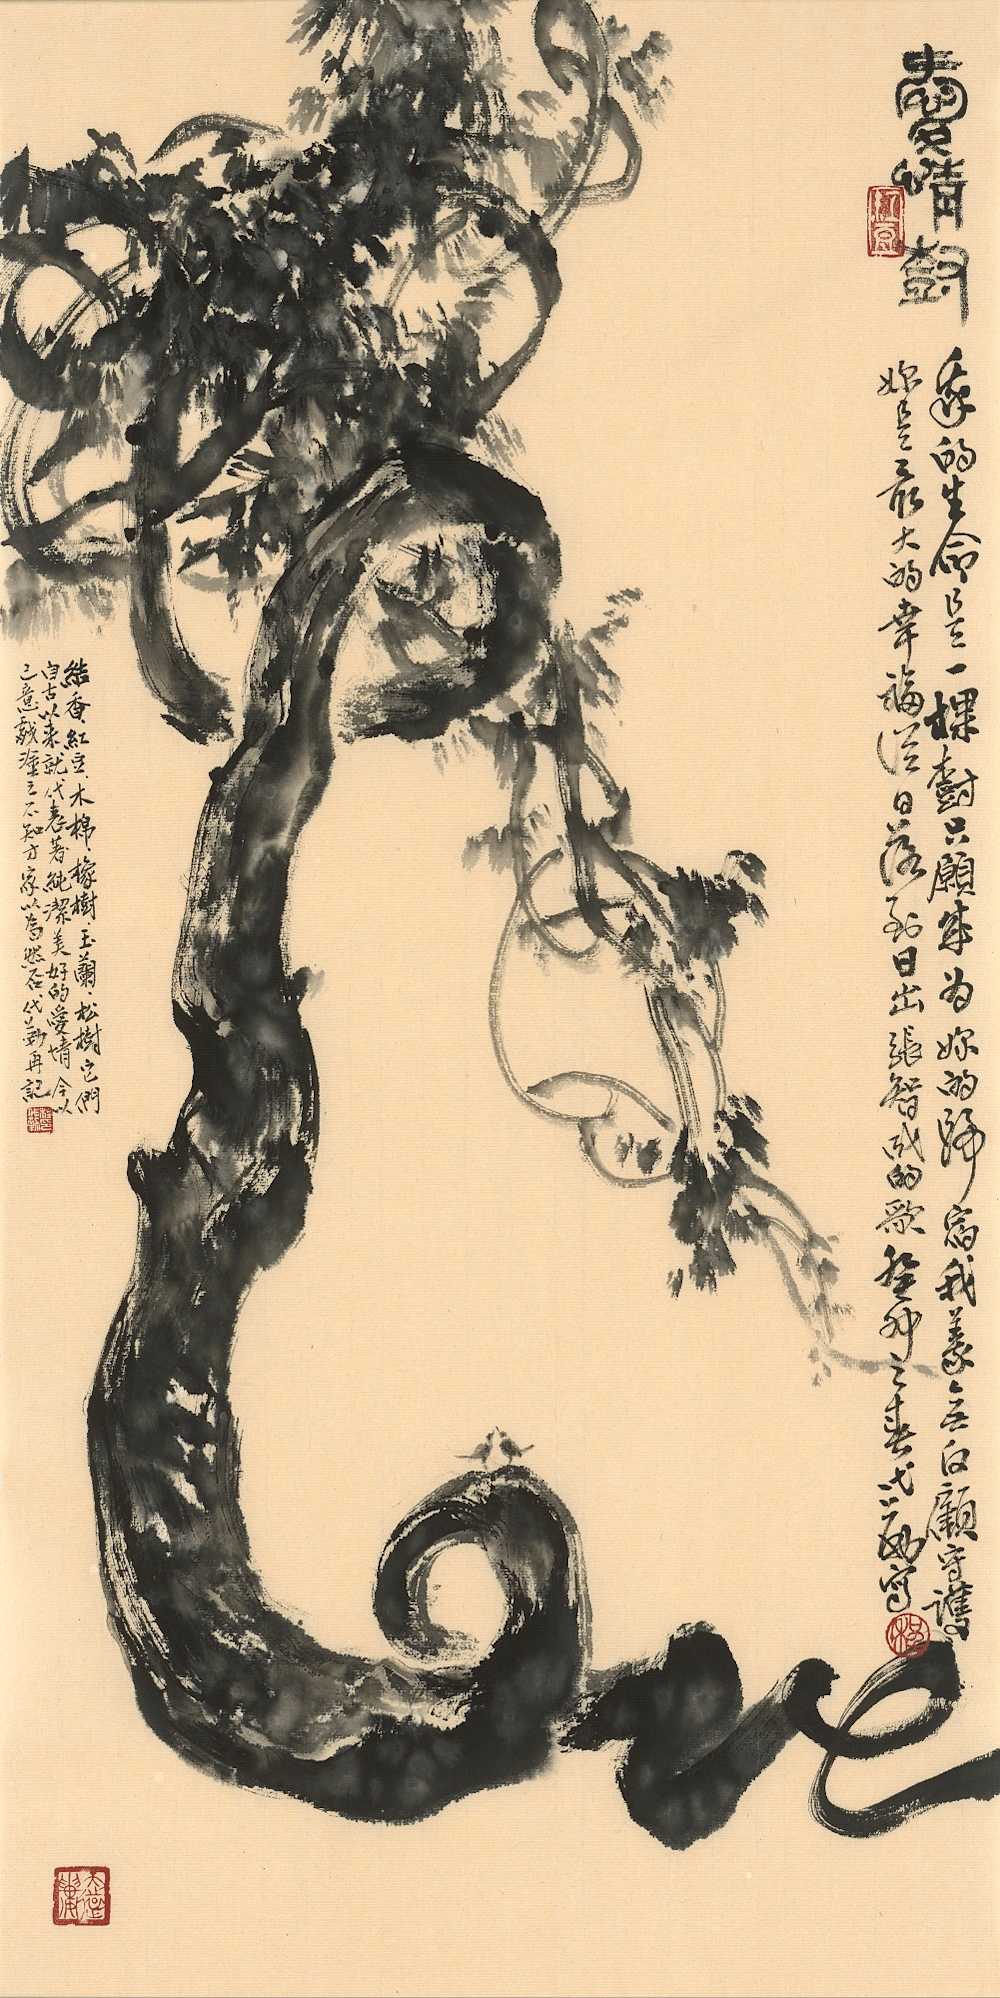 愛情樹
我的生命是一棵樹只願成為妳的歸宿我義無反顧守護
妳是最大的幸福從日落到日出張智成的歌癸卯之春寫
結香、紅豆、木棉、橡樹、玉蘭、松樹它們
自古以來就代表著純潔美好的愛情今以
己意戲塗之不知方家以為然否再記